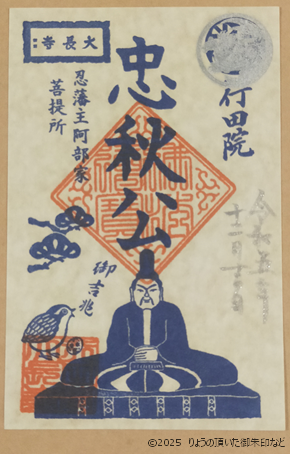 行田院
令和
十二月
忠秋公
大長寺
忍藩主阿部家
菩提所
御吉兆
©2025 りょうの頂いた御朱印など